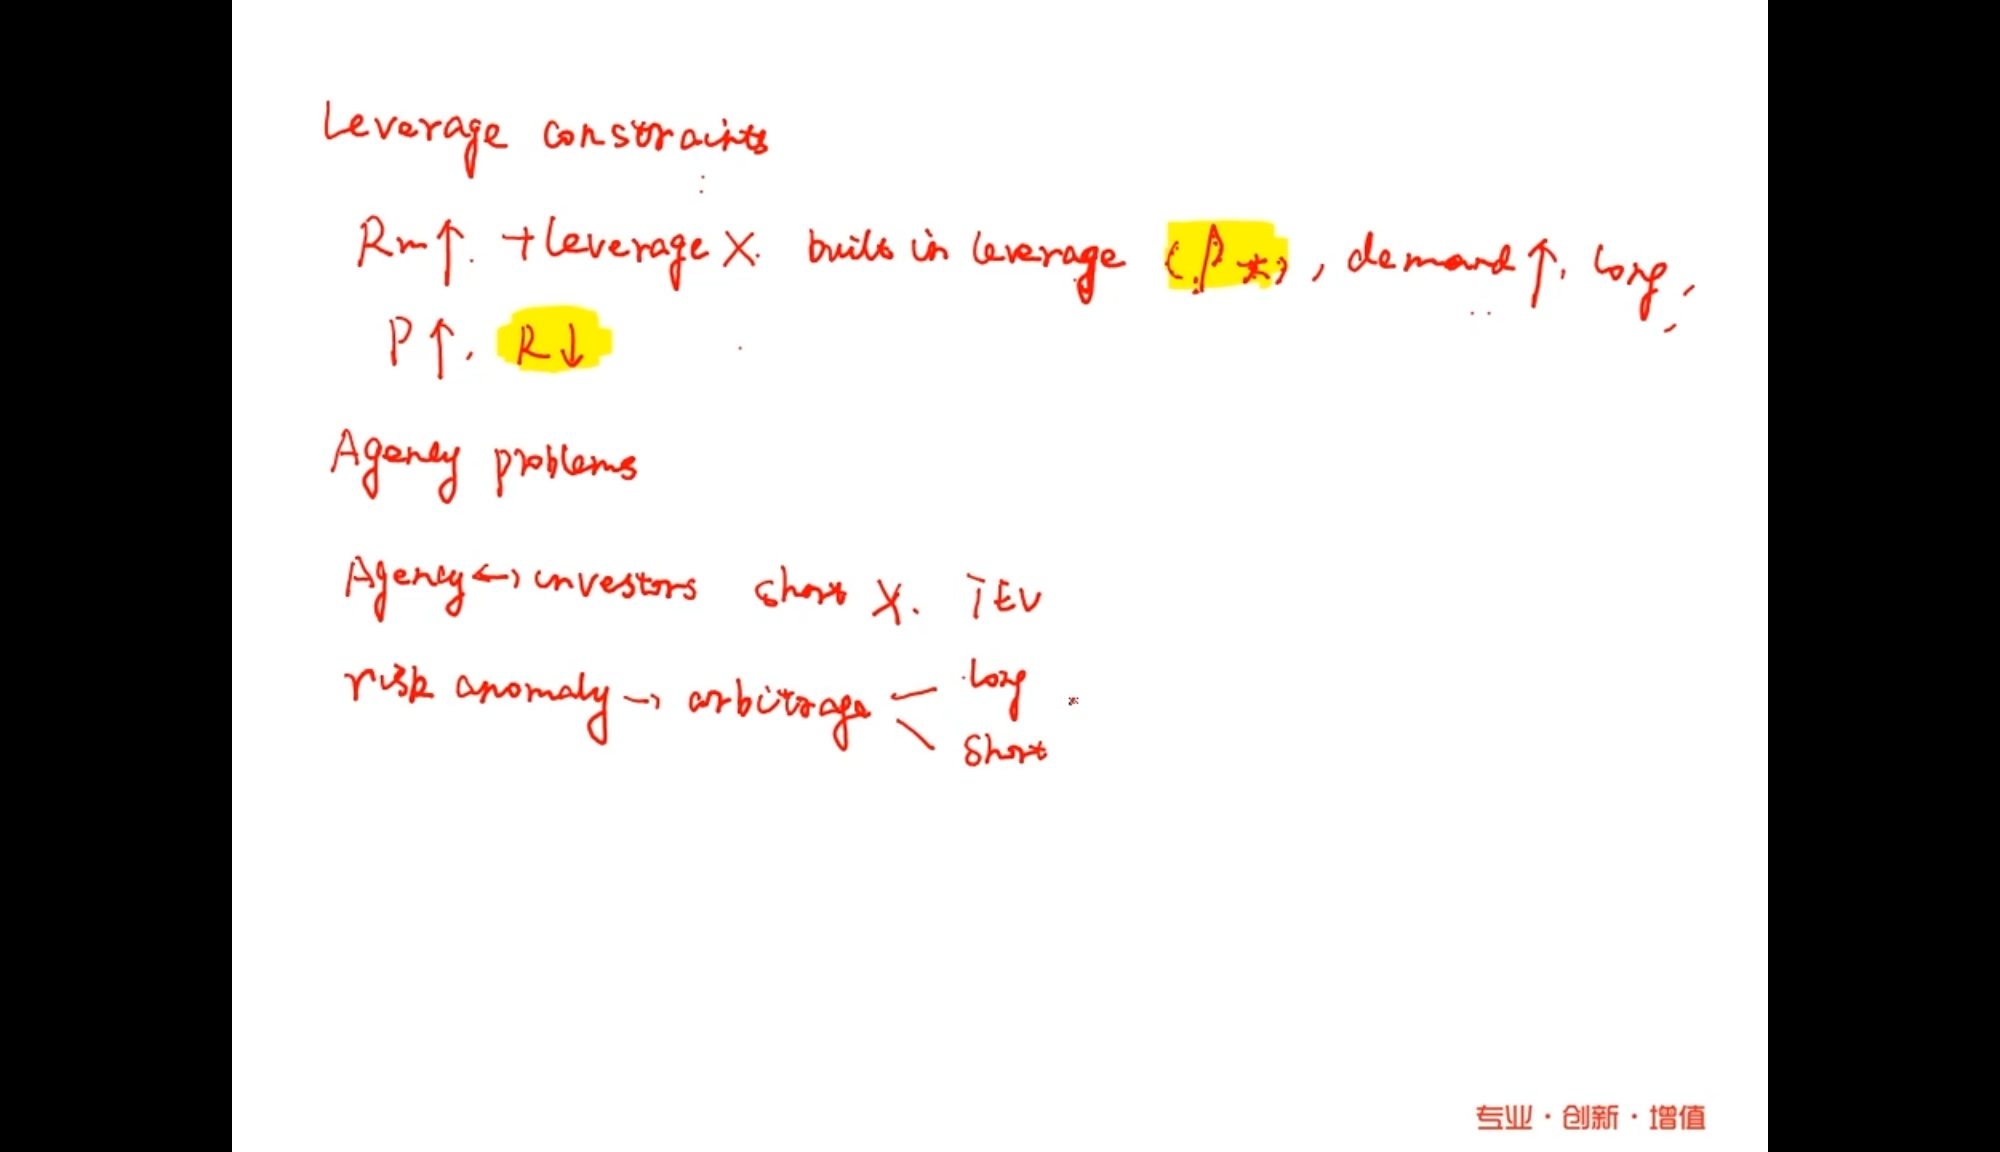 Leverage constraints
Rm↑. + leverage X. built in leverage (β大), demand↑, long,
P↑, R↓
Agency problems
Agency ↔ investors short X. TEV
risk anomaly → arbitrage long
short
专业·创新·增值